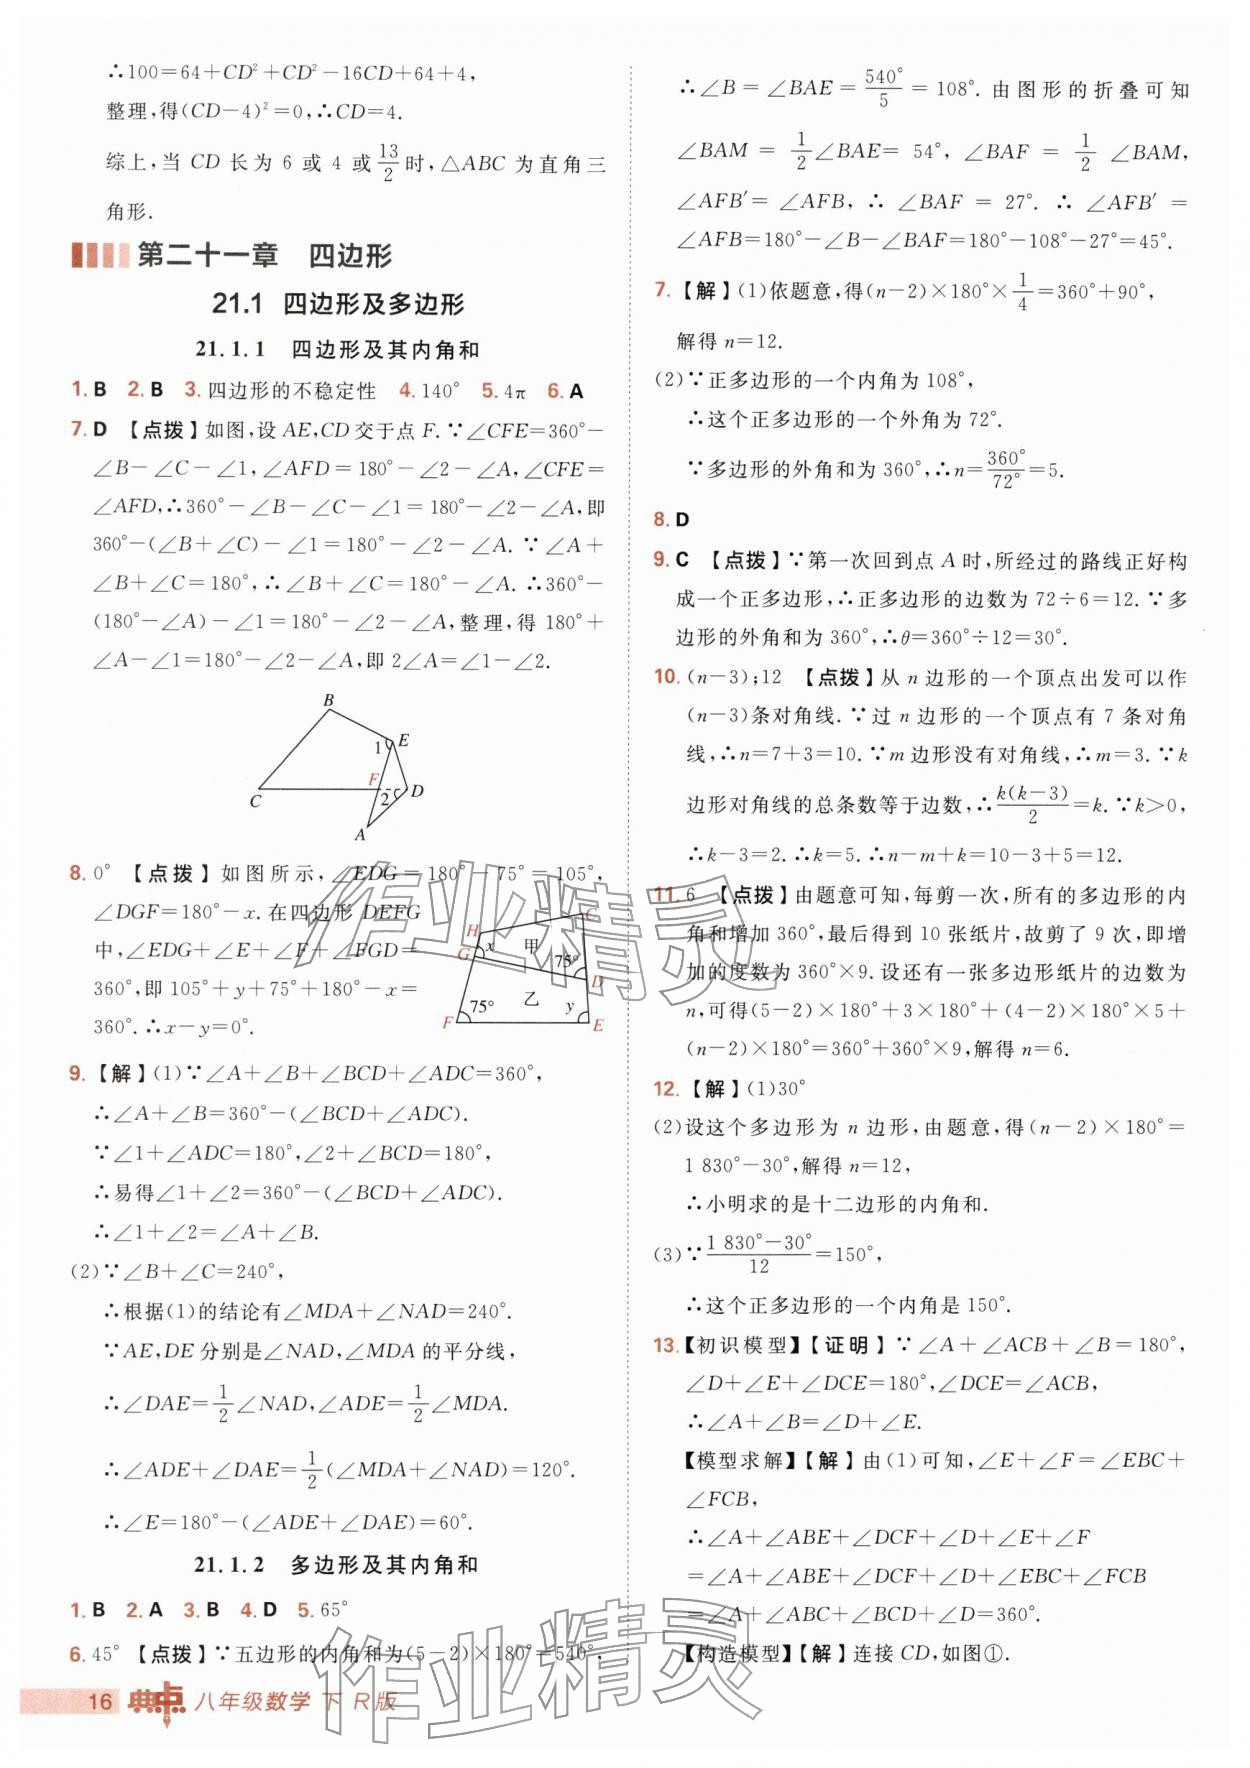 ∴100=64+CD²+CD²-16CD+64+4,
整理,得(CD-4)²=0,∴CD=4.
综上,当 CD 长为 6 或 4 或 13/2 时,△ABC 为直角三
角形.
第二十一章 四边形
21.1 四边形及多边形
21.1.1 四边形及其内角和
1. B 2. B 3. 四边形的不稳定性 4. 140° 5. 4π 6. A
7. D 【点拨】如图,设 AE,CD 交于点 F. ∵∠CFE=360°-
∠B-∠C-∠1,∠AFD=180°-∠2-∠A,∠CFE=
∠AFD,∴360°-∠B-∠C-∠1=180°-∠2-∠A,即
360°-(∠B+∠C)-∠1=180°-∠2-∠A. ∵∠A+
∠B+∠C=180°,∴∠B+∠C=180°-∠A,∴360°-
(180°-∠A)-∠1=180°-∠2-∠A,整理,得 180°+
∠A-∠1=180°-∠2-∠A,即 2∠A=∠1-∠2.
B
1 E
F
C 2 D
A
8. 0° 【点拨】如图所示,∠EDG=180°-75°=105°,
∠DGF=180°-x. 在四边形 DEFG
中,∠EDG+∠E+∠F+∠FGD=
360°,即 105°+y+75°+180°-x=
360°. ∴x-y=0°.
C
H
G x 甲 75°
D
75° 乙 y
F E
9. 【解】(1)∵∠A+∠B+∠BCD+∠ADC=360°,
∴∠A+∠B=360°-(∠BCD+∠ADC).
∵∠1+∠ADC=180°,∠2+∠BCD=180°,
∴易得∠1+∠2=360°-(∠BCD+∠ADC).
∴∠1+∠2=∠A+∠B.
(2)∵∠B+∠C=240°,
∴根据(1)的结论有∠MDA+∠NAD=240°.
∵AE,DE 分别是∠NAD,∠MDA 的平分线,
∴∠DAE=1/2∠NAD,∠ADE=1/2∠MDA.
∴∠ADE+∠DAE=1/2(∠MDA+∠NAD)=120°.
∴∠E=180°-(∠ADE+∠DAE)=60°.
21.1.2 多边形及其内角和
1. B 2. A 3. B 4. D 5. 65°
6. 45° 【点拨】∵五边形的内角和为(5-2)×180°=540°,
∴∠B=∠BAE=540°/5=108°. 由图形的折叠可知
∠BAM=1/2∠BAE=54°,∠BAF=1/2∠BAM,
∠AFB′=∠AFB,∴∠BAF=27°. ∴∠AFB′=
∠AFB=180°-∠B-∠BAF=180°-108°-27°=45°.
7. 【解】(1)依题意,得(n-2)×180°×1/4=360°+90°,
解得 n=12.
(2)∵正多边形的一个内角为 108°,
∴这个正多边形的一个外角为 72°.
∵多边形的外角和为 360°,∴n=360°/72°=5.
8. D
9. C 【点拨】∵第一次回到点 A 时,所经过的路线正好构
成一个正多边形,∴正多边形的边数为 72÷6=12. ∵多
边形的外角和为 360°,∴θ=360°÷12=30°.
10. (n-3);12 【点拨】从 n 边形的一个顶点出发可以作
(n-3)条对角线. ∵过 n 边形的一个顶点有 7 条对角
线,∴n=7+3=10. ∵m 边形没有对角线,∴m=3. ∵k
边形对角线的总条数等于边数,∴k(k-3)/2=k. ∵k>0,
∴k-3=2. ∴k=5. ∴n-m+k=10-3+5=12.
11. 6 【点拨】由题意可知,每剪一次,所有的多边形的内
角和增加 360°,最后得到 10 张纸片,故剪了 9 次,即增
加的度数为 360°×9. 设还有一张多边形纸片的边数为
n,可得(5-2)×180°+3×180°+(4-2)×180°×5+
(n-2)×180°=360°+360°×9,解得 n=6.
12. 【解】(1)30°
(2)设这个多边形为 n 边形,由题意,得(n-2)×180°=
1 830°-30°,解得 n=12,
∴小明求的是十二边形的内角和.
(3)∵1 830°-30°/12=150°,
∴这个正多边形的一个内角是 150°.
13. 【初识模型】【证明】∵∠A+∠ACB+∠B=180°,
∠D+∠E+∠DCE=180°,∠DCE=∠ACB,
∴∠A+∠B=∠D+∠E.
【模型求解】【解】由(1)可知,∠E+∠F=∠EBC+
∠FCB,
∴∠A+∠ABE+∠DCF+∠D+∠E+∠F
=∠A+∠ABE+∠DCF+∠D+∠EBC+∠FCB
=∠A+∠ABC+∠BCD+∠D=360°.
【构造模型】【解】连接 CD,如图①.
16 典点 八年级数学 下 R版
作业精灵
作业精灵